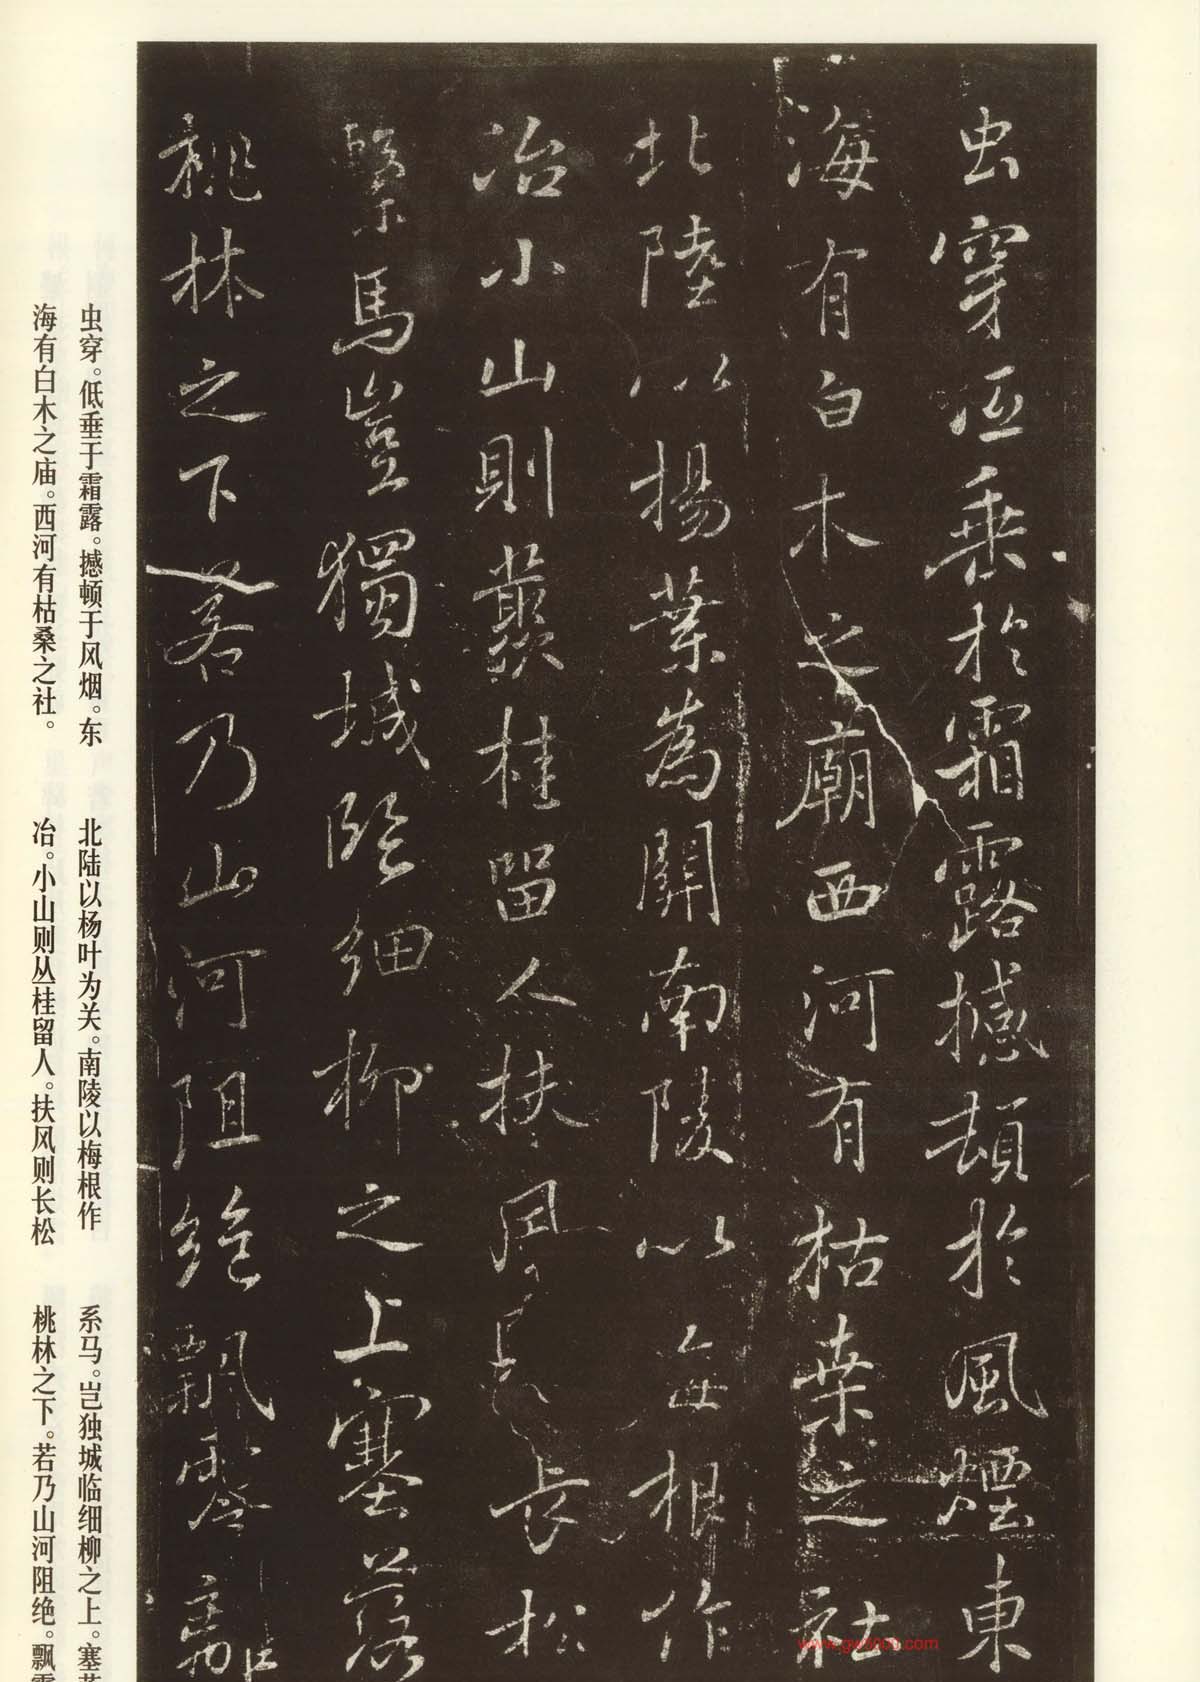 虫穿低垂於霜露撼頓於風煙東
海有白木之廟西河有枯桒之社
北陸以楊葉為關南陵以每根作
冶小山則叢桂留人扶風則長松
繫馬豈獨城臨细柳之上塞落
桃林之下若乃山河阻绝飘零離
虫穿。低垂于霜露。撼顿于风烟。东
海有白木之庙。西河有枯桑之社。
北陆以杨叶为关。南陵以梅根作
冶。小山则丛桂留人。扶风则长松
系马。岂独城临细柳之上。塞落
桃林之下。若乃山河阻绝。飘零
www.gw8000.com